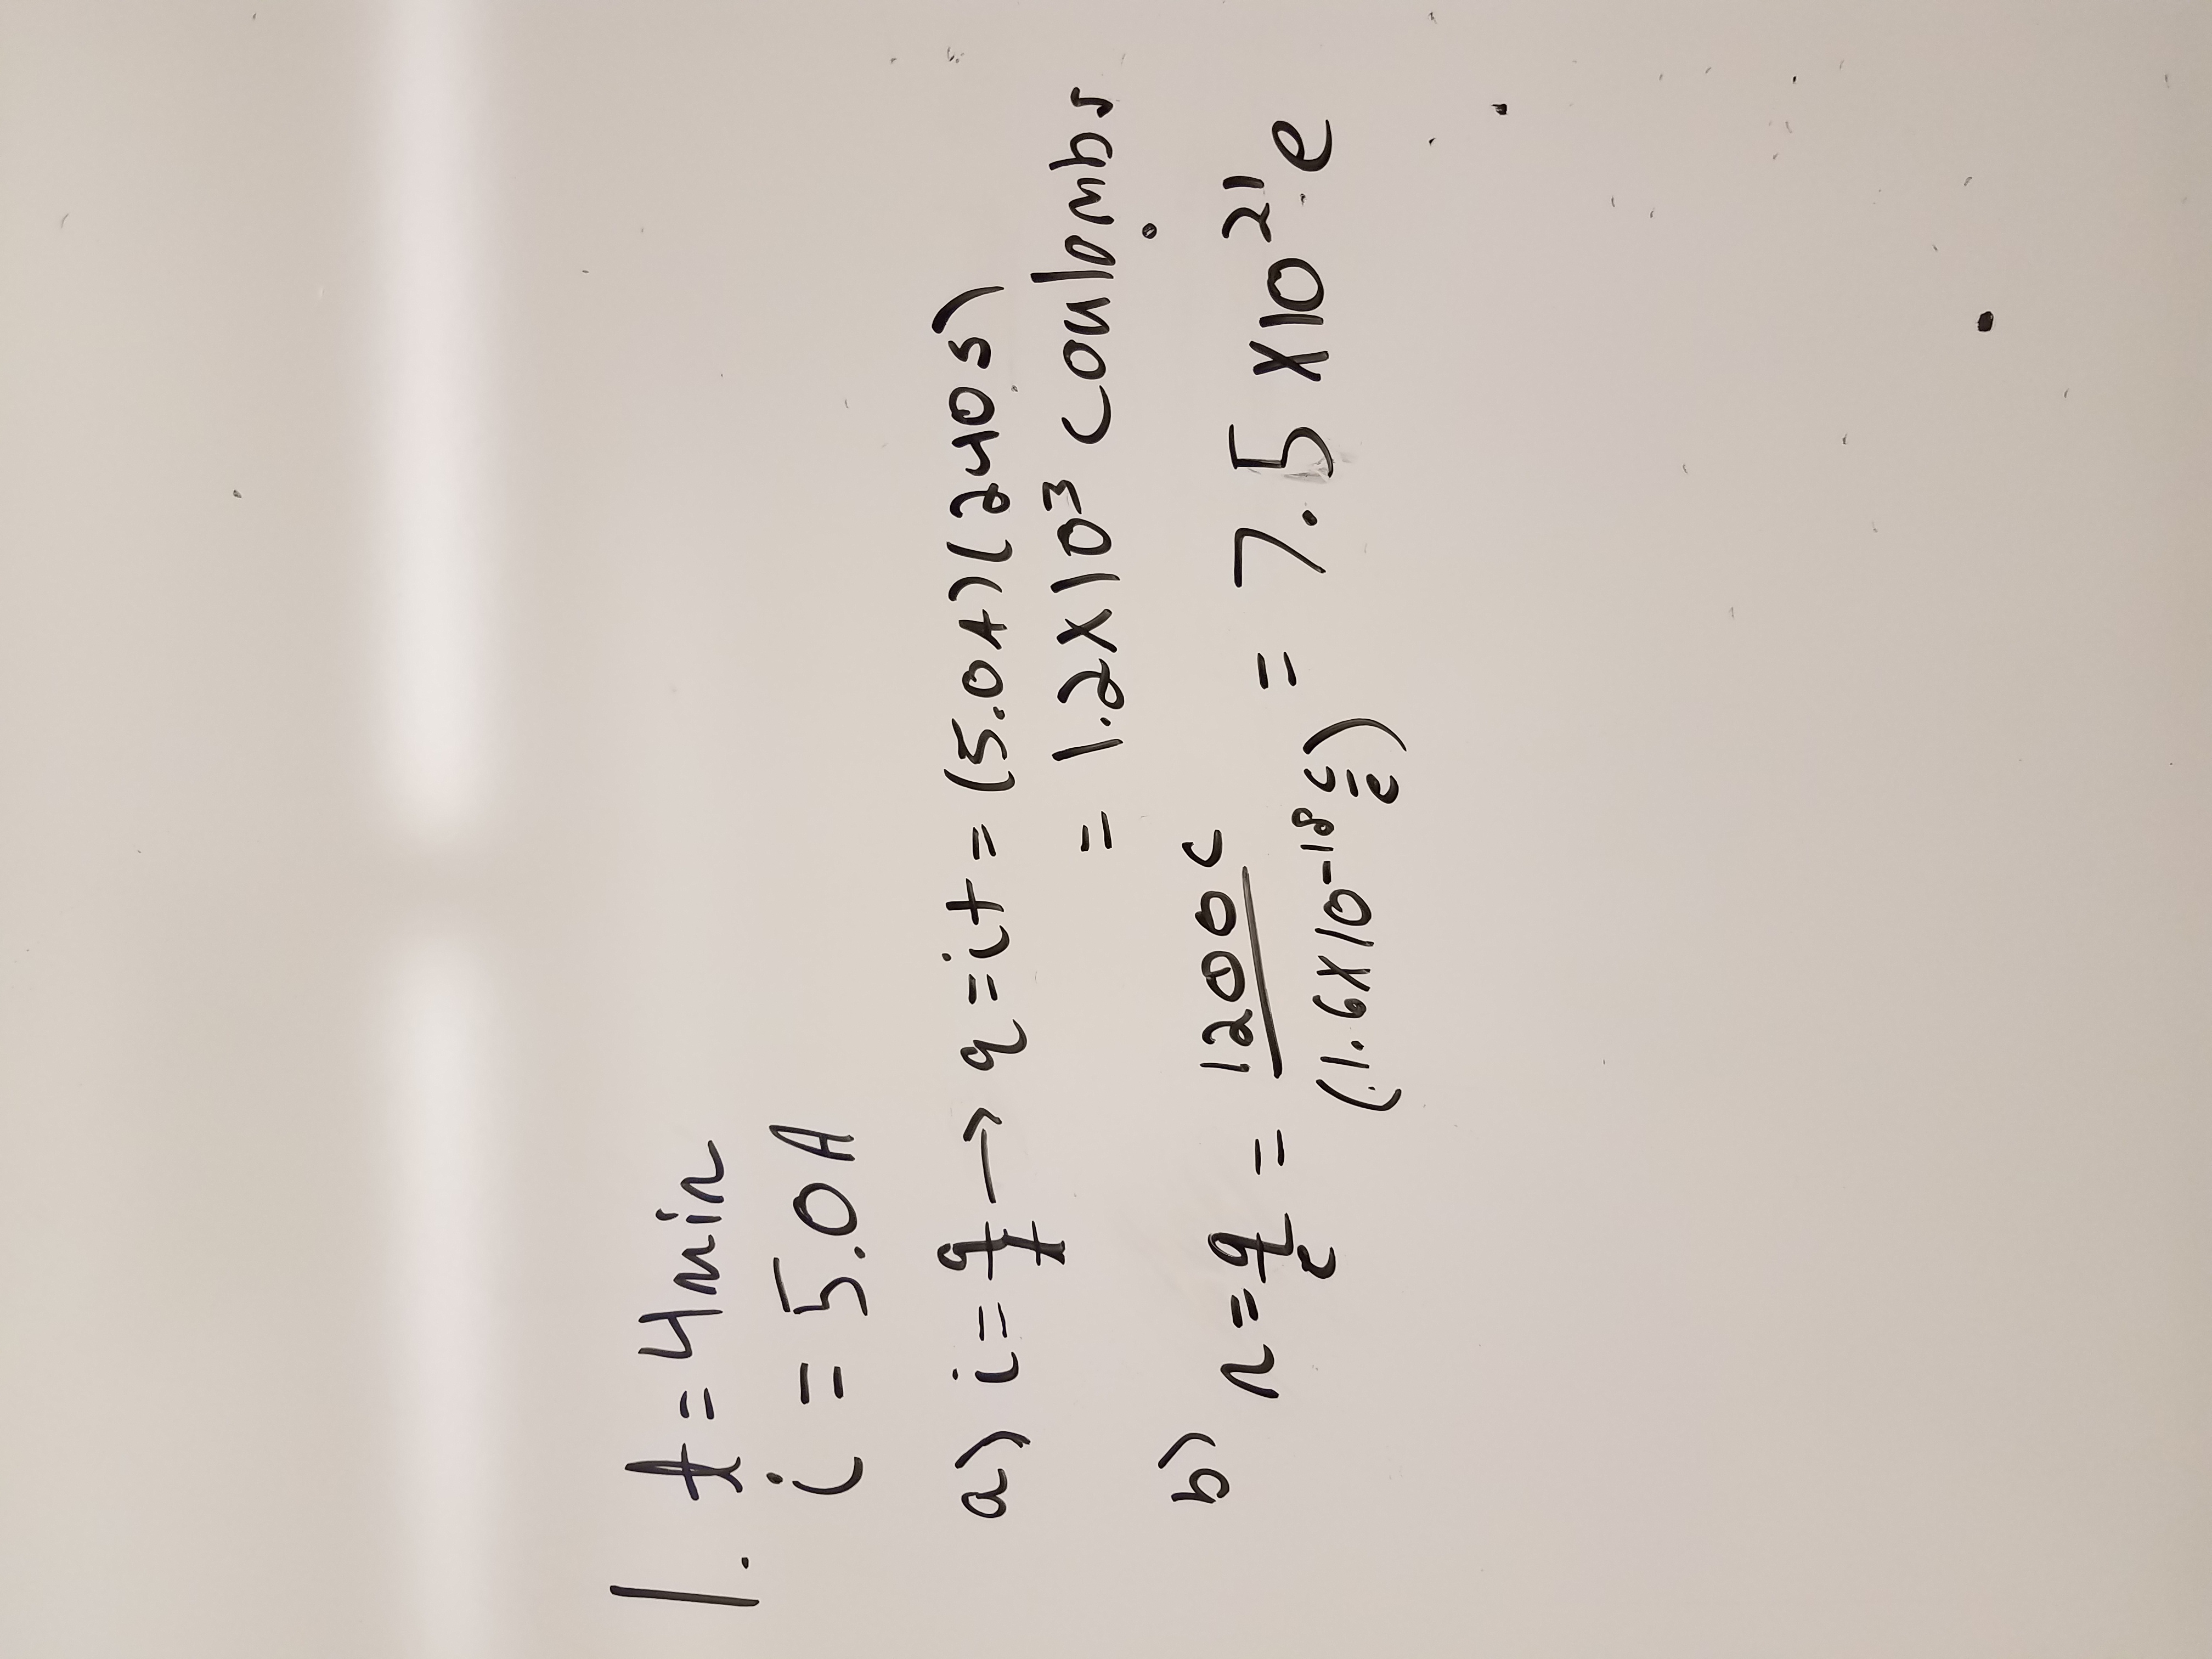 1. t = 4min
i = 5.0A
a) i = q/t → q = it = (5.0A)(240s)
= 1.2X10³ coulombs
b) n = q/e = 1200C/(1.6X10⁻¹⁸ C/e) = 7.5 X10²¹ e